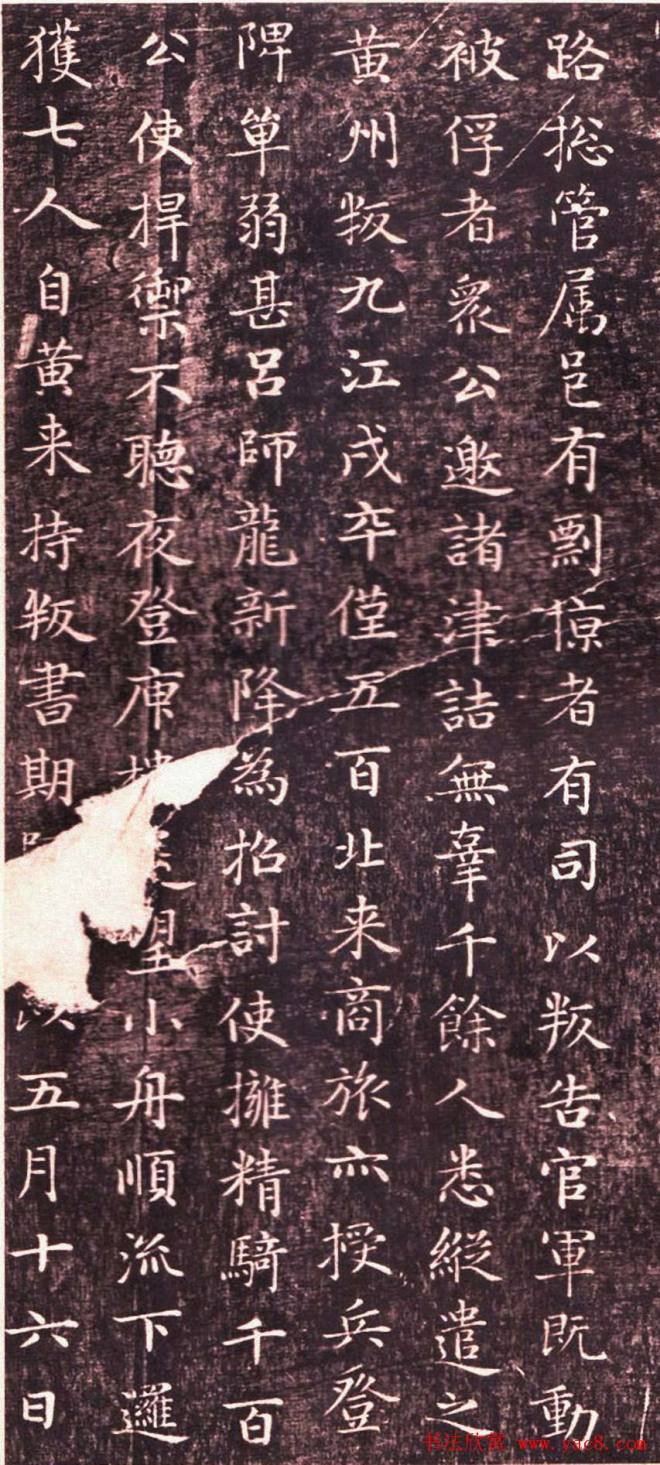 路捴管属邑有剽掠者有司以叛告官軍既動
被俘者衆公邀諸津詰無辜千餘人悉縱遣之
黄州叛九江戍卒僅五百北来商旅亦授兵登
陴单弱甚呂師龍新降為招討使擁精騎千百
公使捍禦不聴夜登庾樓望小舟順流下邏
獲七人自黄来持叛書期以五月十六日
书法欣赏 www.yac8.com